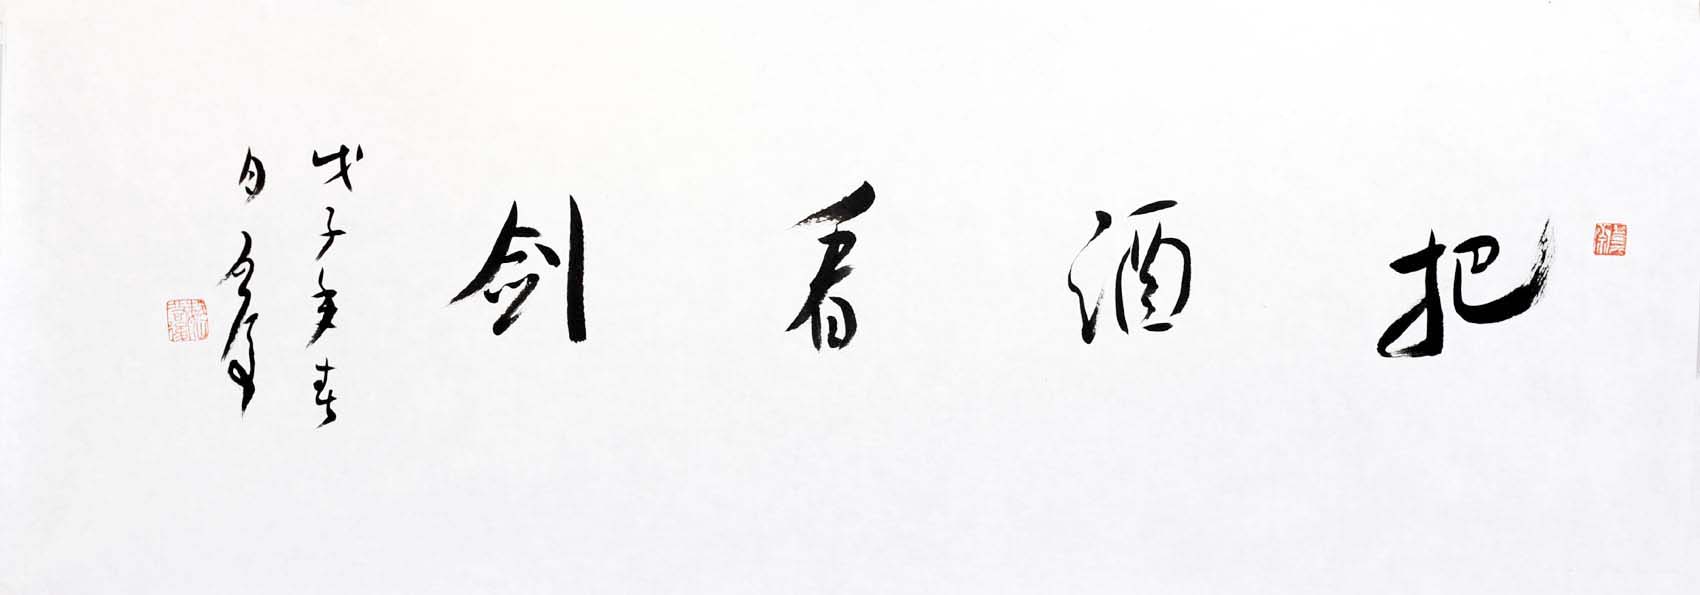 把酒看剑
戊子年春
月